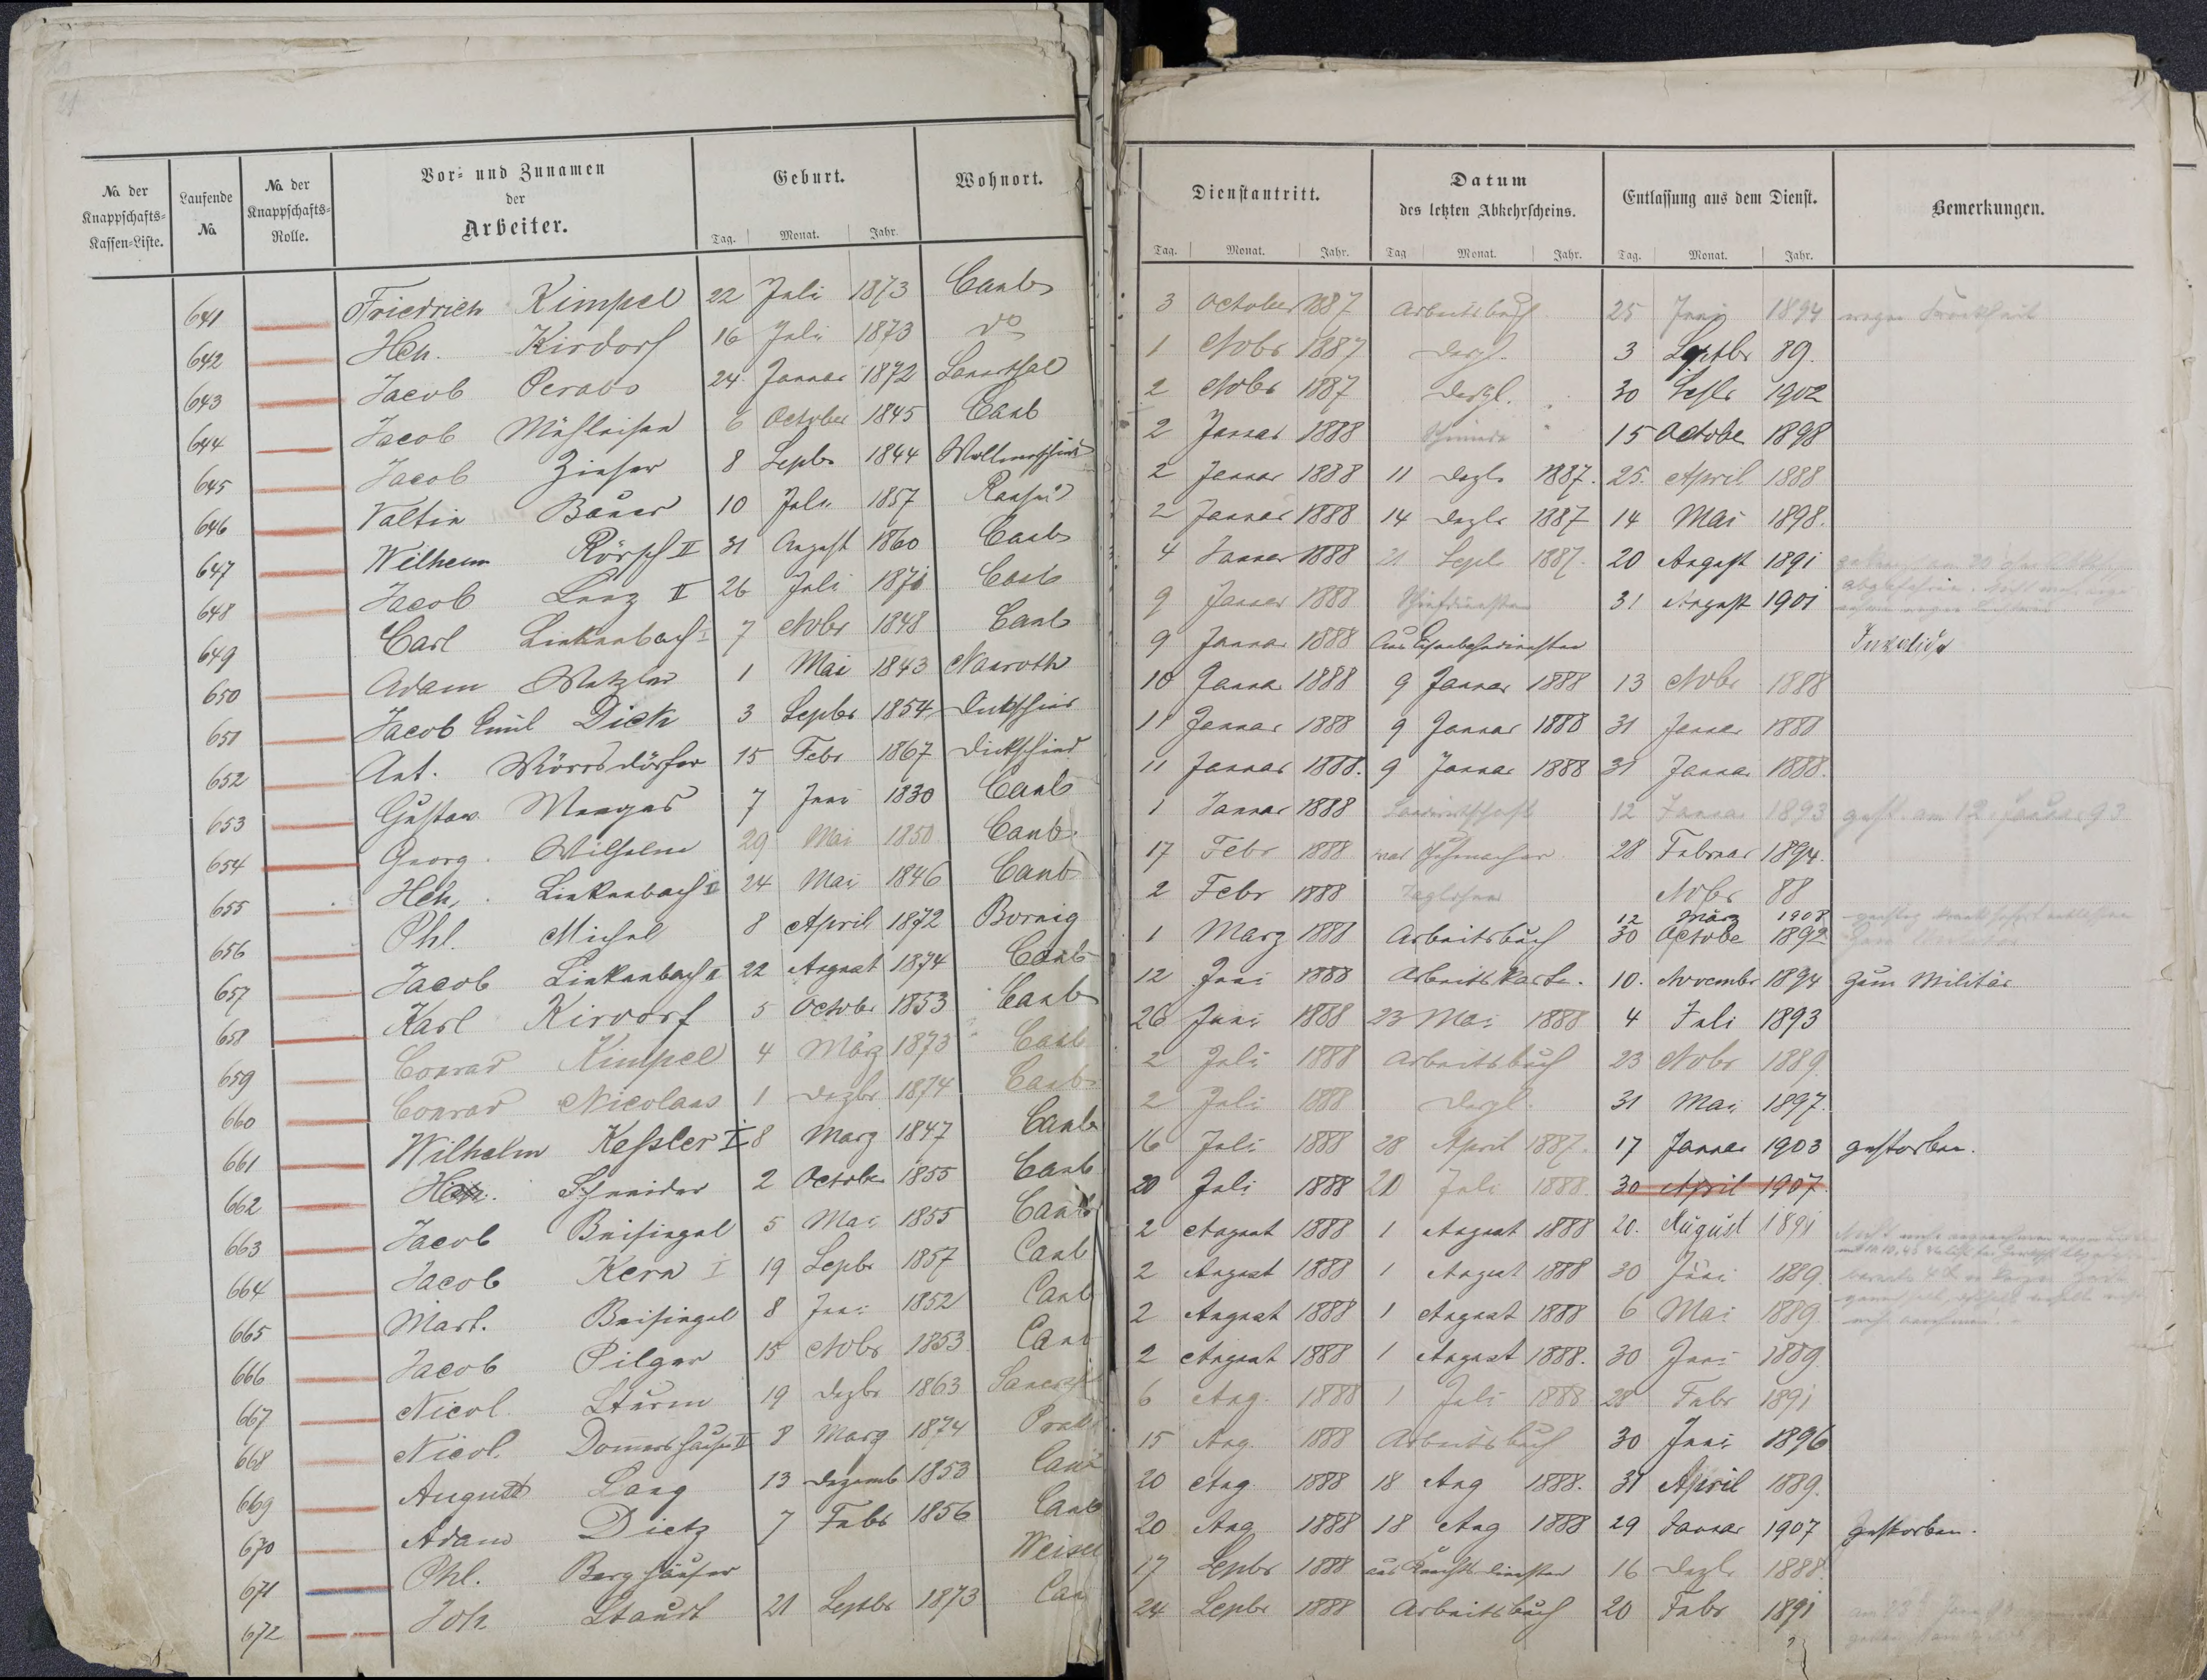 No. der Knappschafts-Kassen-Liste. Laufende No. No. der Knappschafts-Rolle. Vor- und Zunamen der Arbeiter. Geburt. Wohnort.
Tag. Monat. Jahr.
641 Friedrich Kimpel 22 Juli 1873 Caub
642 Hch. Kirdorf 16 Juli 1873 do
643 Jacob Perabo 24 Januar 1872 Sauerthal
644 Jacob Mühleisen 6 October 1845 Caub
645 Jacob Zinser 8 Septbr 1844
646 Valtin Bauer 10 Juli 1857
647 Wilhelm Rörsch II 31 August 1860 Caub
648 Jacob Lenz II 26 Juli 1871 Caub
649 Carl Linkenbach I 7 Nobr 1848 Caub
650 Adam Metzler 1 Mai 1843 Nauroth
651 Jacob Emil Dick 3 Septbr 1854 Dickschied
652 Ant. Wörrsdörfer 15 Febr 1867 Dickschied
653 Gustav Menges 7 Juni 1830 Caub
654 Georg Wilhelm 29 Mai 1850 Caub
655 Hch. Linkenbach II 24 Mai 1846 Caub
656 Phl. Michel 8 April 1872 Bornig
657 Jacob Linkenbach II 22 August 1874 Caub
658 Karl Kirdorf 5 Octobr 1853 Caub
659 Conrad Kimpel 4 März 1873 Caub
660 Conrad Nicolaus 1 Dezbr 1874 Caub
661 Wilhelm Kessler I 8 März 1847 Caub
662 Hch. Schneider 2 October 1855 Caub
663 Jacob Beisiegel 5 Mai 1855 Caub
664 Jacob Kern I 19 Septbr 1857 Caub
665 Mart. Beisiegel 8 Juni 1852 Caub
666 Jacob Pilger 15 Nobr 1853 Caub
667 Nicol. Sturm 19 Dezbr 1863
668 Nicol. Domershausen II 8 März 1874
669 August Lang 13 Dezemb 1853 Caub
670 Adam Dietz 7 Febr 1856 Caub
671 Phl. Berghäuser Weisel
672 Joh Staudt 21 Septbr 1873 Cau
Dienstantritt. Datum des letzten Abkehrscheins. Entlassung aus dem Dienst. Bemerkungen.
Tag. Monat. Jahr. Tag Monat. Jahr. Tag. Monat. Jahr.
3 October 1887 Arbeitsbuch 25 Juni 1894 wegen Krankheit
1 Nobr 1887 Dergl. 3 Septbr 89.
2 Nobr 1887 Dergl. 30 1902
2 Januar 1888 15 Octobe 1898
2 Januar 1888 11 Dezb 1887. 25. April 1888
2 Januar 1888 14 Dezbr 1887 14 Mai 1898.
4 Januar 1888 21 Septb 1887. 20 August 1891
9 Januar 1888 31 August 1901
9 Januar 1888 Aus Eisenbahndiensten Invalide
10 Janua 1888 9 Januar 1888 13 Nobr 1888
11 Januar 1888 9 Januar 1888 31 Januar 1888
11 Januar 1888. 9 Januar 1888 31 Januar 1888.
1 Januar 1888 Landwirtschaft 12 Januar 1893 gest. am 12. Januar 93
17 Febr 1888 war Schumacher 28 Februar 1894.
2 Febr 1888 Taglohner Nobr 88
12 März 1908
1 März 1888 Arbeitsbuch 30 Octobe 1892
12 Juni 1888 Arbeitskarte. 10. Novembr 1894 zum Militär
26 Juni 1888 23 Mai 1888 4 Juli 1893
2 Juli 1888 Arbeitsbuch 23 Nobr 1889.
2 Juli 1888 Dergl. 31 Mai 1897.
16 Juli 1888 28 April 1887. 17 Januar 1903 gestorben.
20 Juli 1888 20 Juli 1888. 30 April 1907.
2 August 1888 1 August 1888 20. August 1891
2 August 1888 1 August 1888 30 Juni 1889.
2 August 1888 1 August 1888 6 Mai 1889.
2 August 1888 1 August 1888. 30 Juni 1889
6 Aug. 1888 1 Juli 1888 28 Febr 1891
15 Aug. 1888 Arbeitsbuch 30 Juni 1896
20 Aug 1888 18 Aug 1888. 31 April 1889.
20 Aug 1888 18 Aug 1888 29 Januar 1907 gestorben.
17 Septbr 1888 16 Dezb 1888.
24 Septbr 1888 Arbeitsbuch 20 Febr 1891